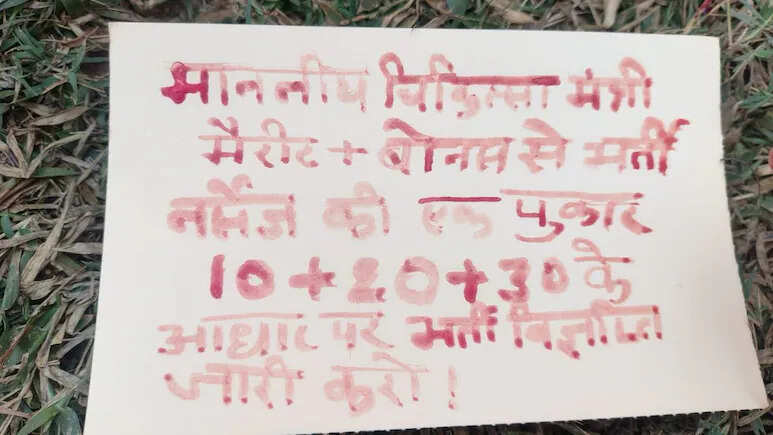 माननीय चिकित्सा मंत्री
मैरीट + बोनस से भर्ती
नर्सेज की एक पुकार
10 + 20 + 30 के
आधार पर भर्ती विज्ञप्ति
जारी करो !